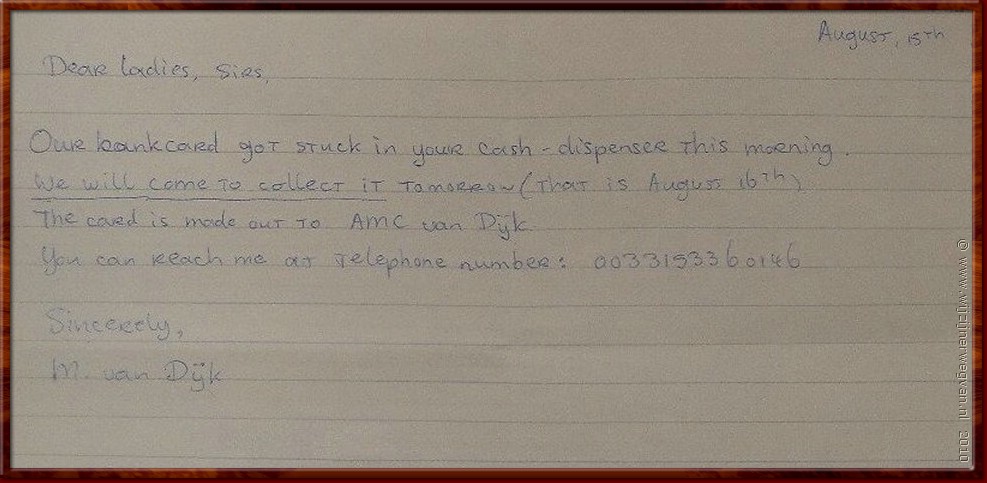 August, 15th
Dear ladies, Sirs,
Our bankcard got stuck in your cash-dispenser this morning.
We will come to collect it tomorrow (that is August 16th)
The card is made out to AMC van Dijk
You can reach me at telephone number: 0033153360146
Sincerely,
M. van Dijk
© www.wijzijnerwegvan.nl 2010